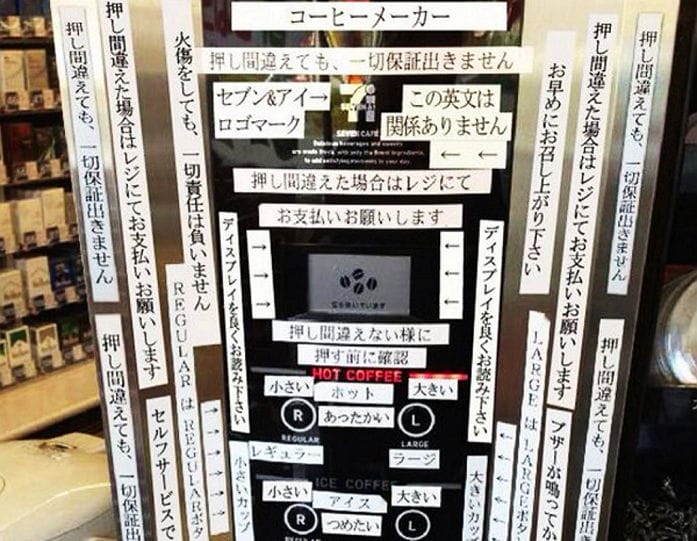 コーヒーメーカー
押し間違えても、一切保証出きません
セブン&アイ→
ロゴマーク
この英文は
関係ありません
← ←
SEVEN CAFÉ
押し間違えた場合はレジにて
お支払いお願いします
→
→
→
←
←
←
押し間違えない様に
押す前に確認
HOT COFFEE
小さい
ホット
大きい
R
あったかい
L
REGULAR
LARGE
レギュラー
ラージ
ICE COFFEE
小さい
アイス
大きい
R
つめたい
L
REGULAR
押し間違えても、一切保証出きません
押し間違えても、一切保証出
押し間違えた場合はレジにてお支払いお願いします
セルフサービスで
火傷をしても、一切責任は負いません
REGULARはREGULARボタ
ディスプレイを良くお読み下さい
小さいカップ
ディスプレイを良くお読み下さい
大きいカップ
お早めにお召し上がり下さい
LARGEはLARGEボタ
押し間違えた場合はレジにてお支払いお願いします
ブザーが鳴ってか
押し間違えても、一切保証出きません
押し間違えても、一切保証出